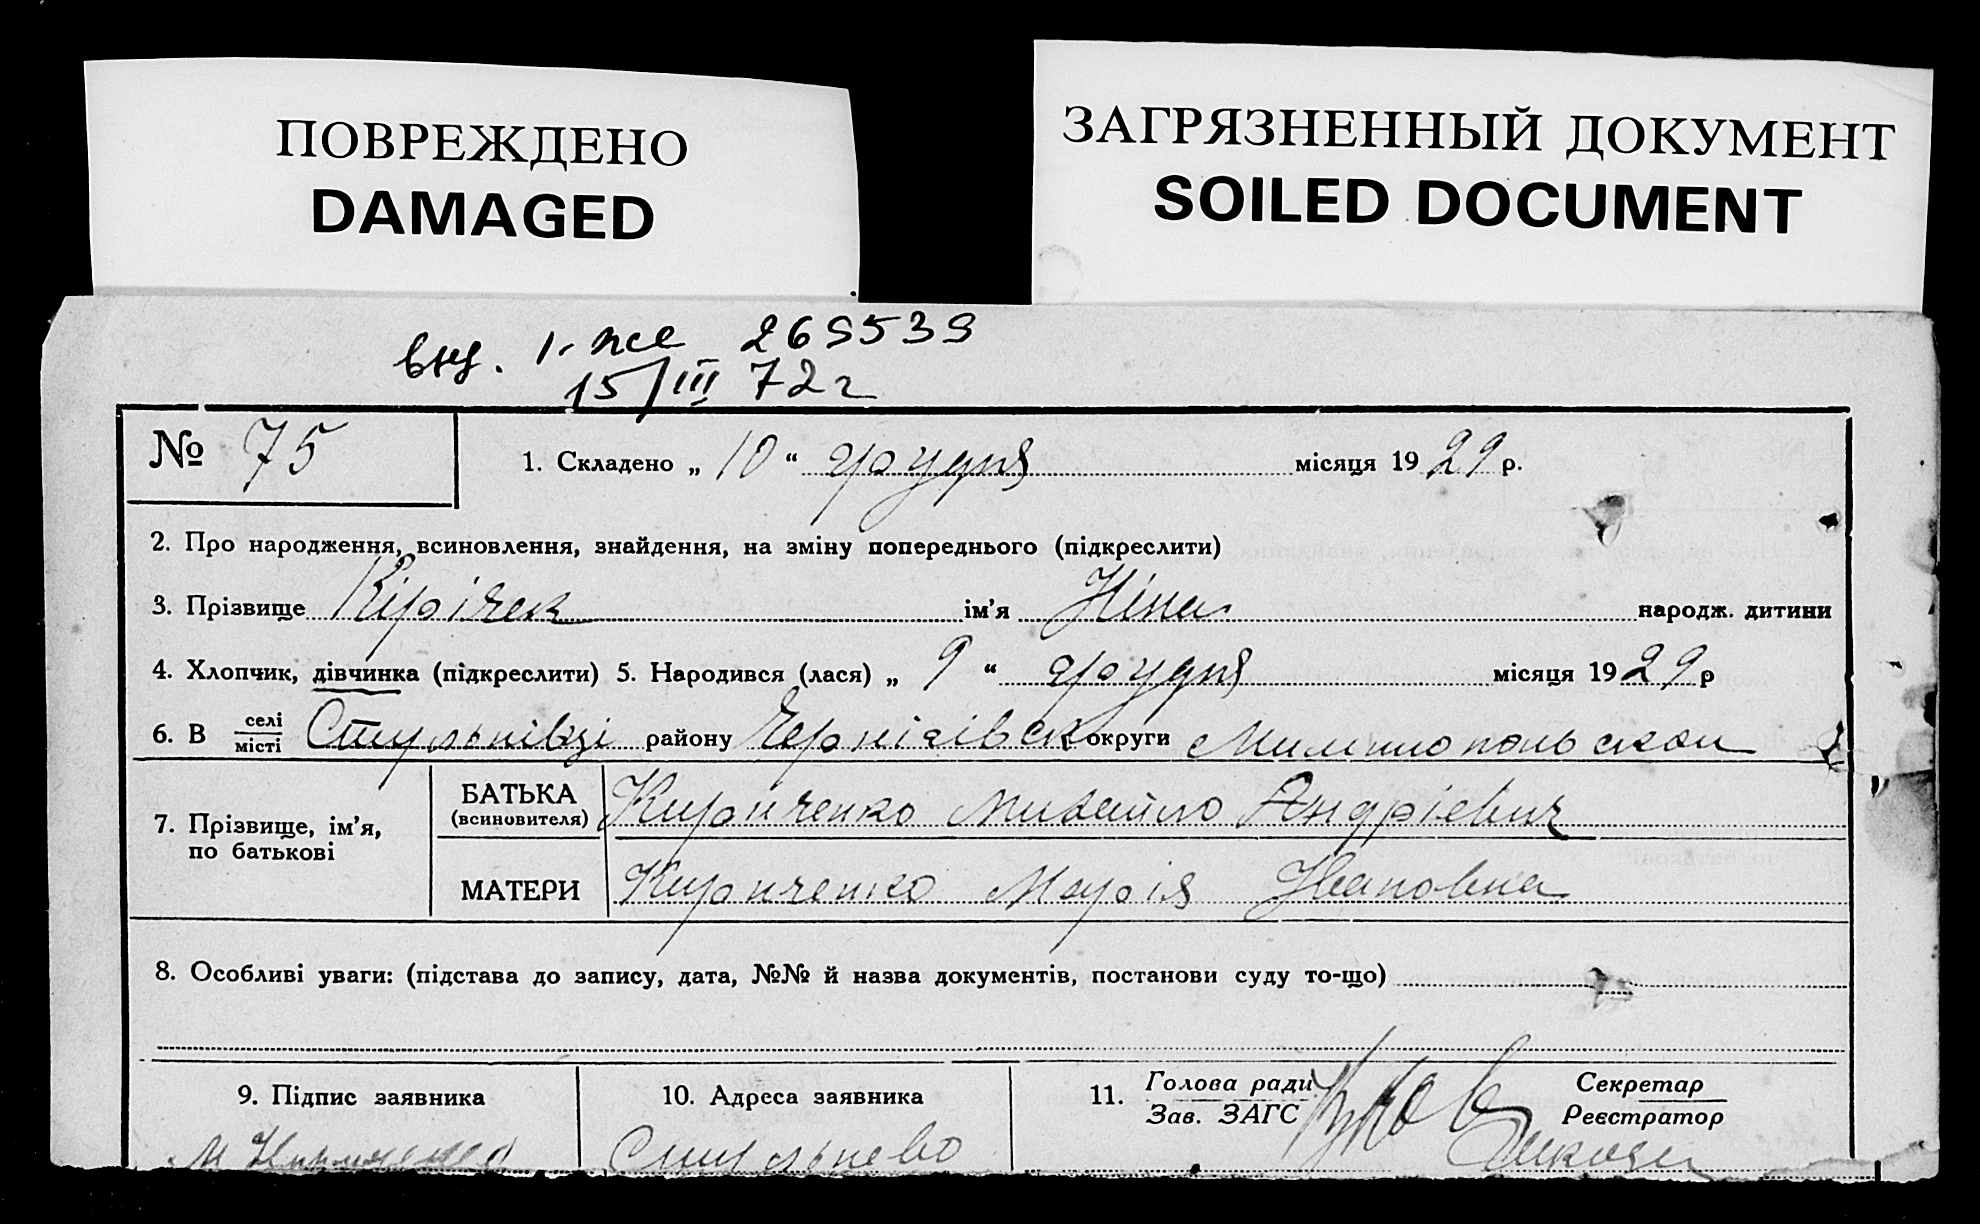 ПОВРЕЖДЕНО
DAMAGED
ЗАГРЯЗНЕННЫЙ ДОКУМЕНТ
SOILED DOCUMENT
269539
15/III 72 г
№ 75
1. Складено „ 10 “ грудня місяця 1929 р.
2. Про народження, всиновлення, знайдення, на зміну попереднього (підкреслити)
3. Прізвище Кірічек ім’я Ніна народж. дитини
4. Хлопчик, дівчинка (підкреслити) 5. Народився (лася) „ 9 “ грудня місяця 1929 р
6. В селі місті району Чернігівск округи
7. Прізвище, ім’я, по батькові
БАТЬКА (всиновителя) Кириченко Михайло Андрієвич
МАТЕРИ Кириченко Марія Івановна
8. Особливі уваги: (підстава до запису, дата, №№ й назва документів, постанови суду то-що)
9. Підпис заявника
10. Адреса заявника
11. Голова ради Зав. ЗАГС
Секретар Реєстратор